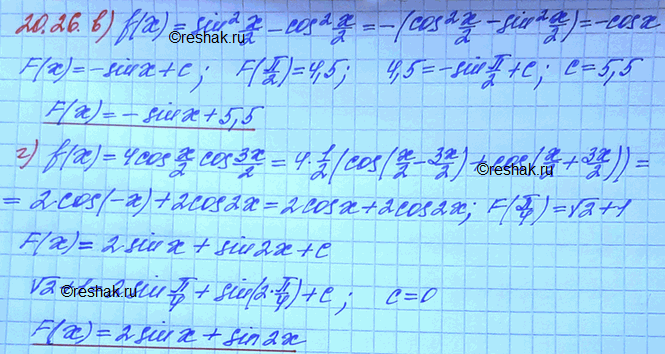 20.26. в) f(x) = sin²x/2 - cos²x/2 = -(cos²x/2 - sin²x/2) = -cosx
©reshak.ru
F(x) = -sinx + c; F(π/2) = 4,5; 4,5 = -sinπ/2 + c; c = 5,5
F(x) = -sinx + 5,5
©reshak.ru
г) f(x) = 4cosx/2 cos3x/2 = 4·1/2(cos(x/2 - 3x/2) + cos(x/2 + 3x/2)) =
= 2·cos(-x) + 2cos2x = 2cosx + 2cos2x; F(π/4) = √2 + 1
F(x) = 2·sinx + sin2x + c
√2 + 1 = 2sinπ/4 + sin(2·π/4) + c; c = 0
©reshak.ru
F(x) = 2sinx + sin2x